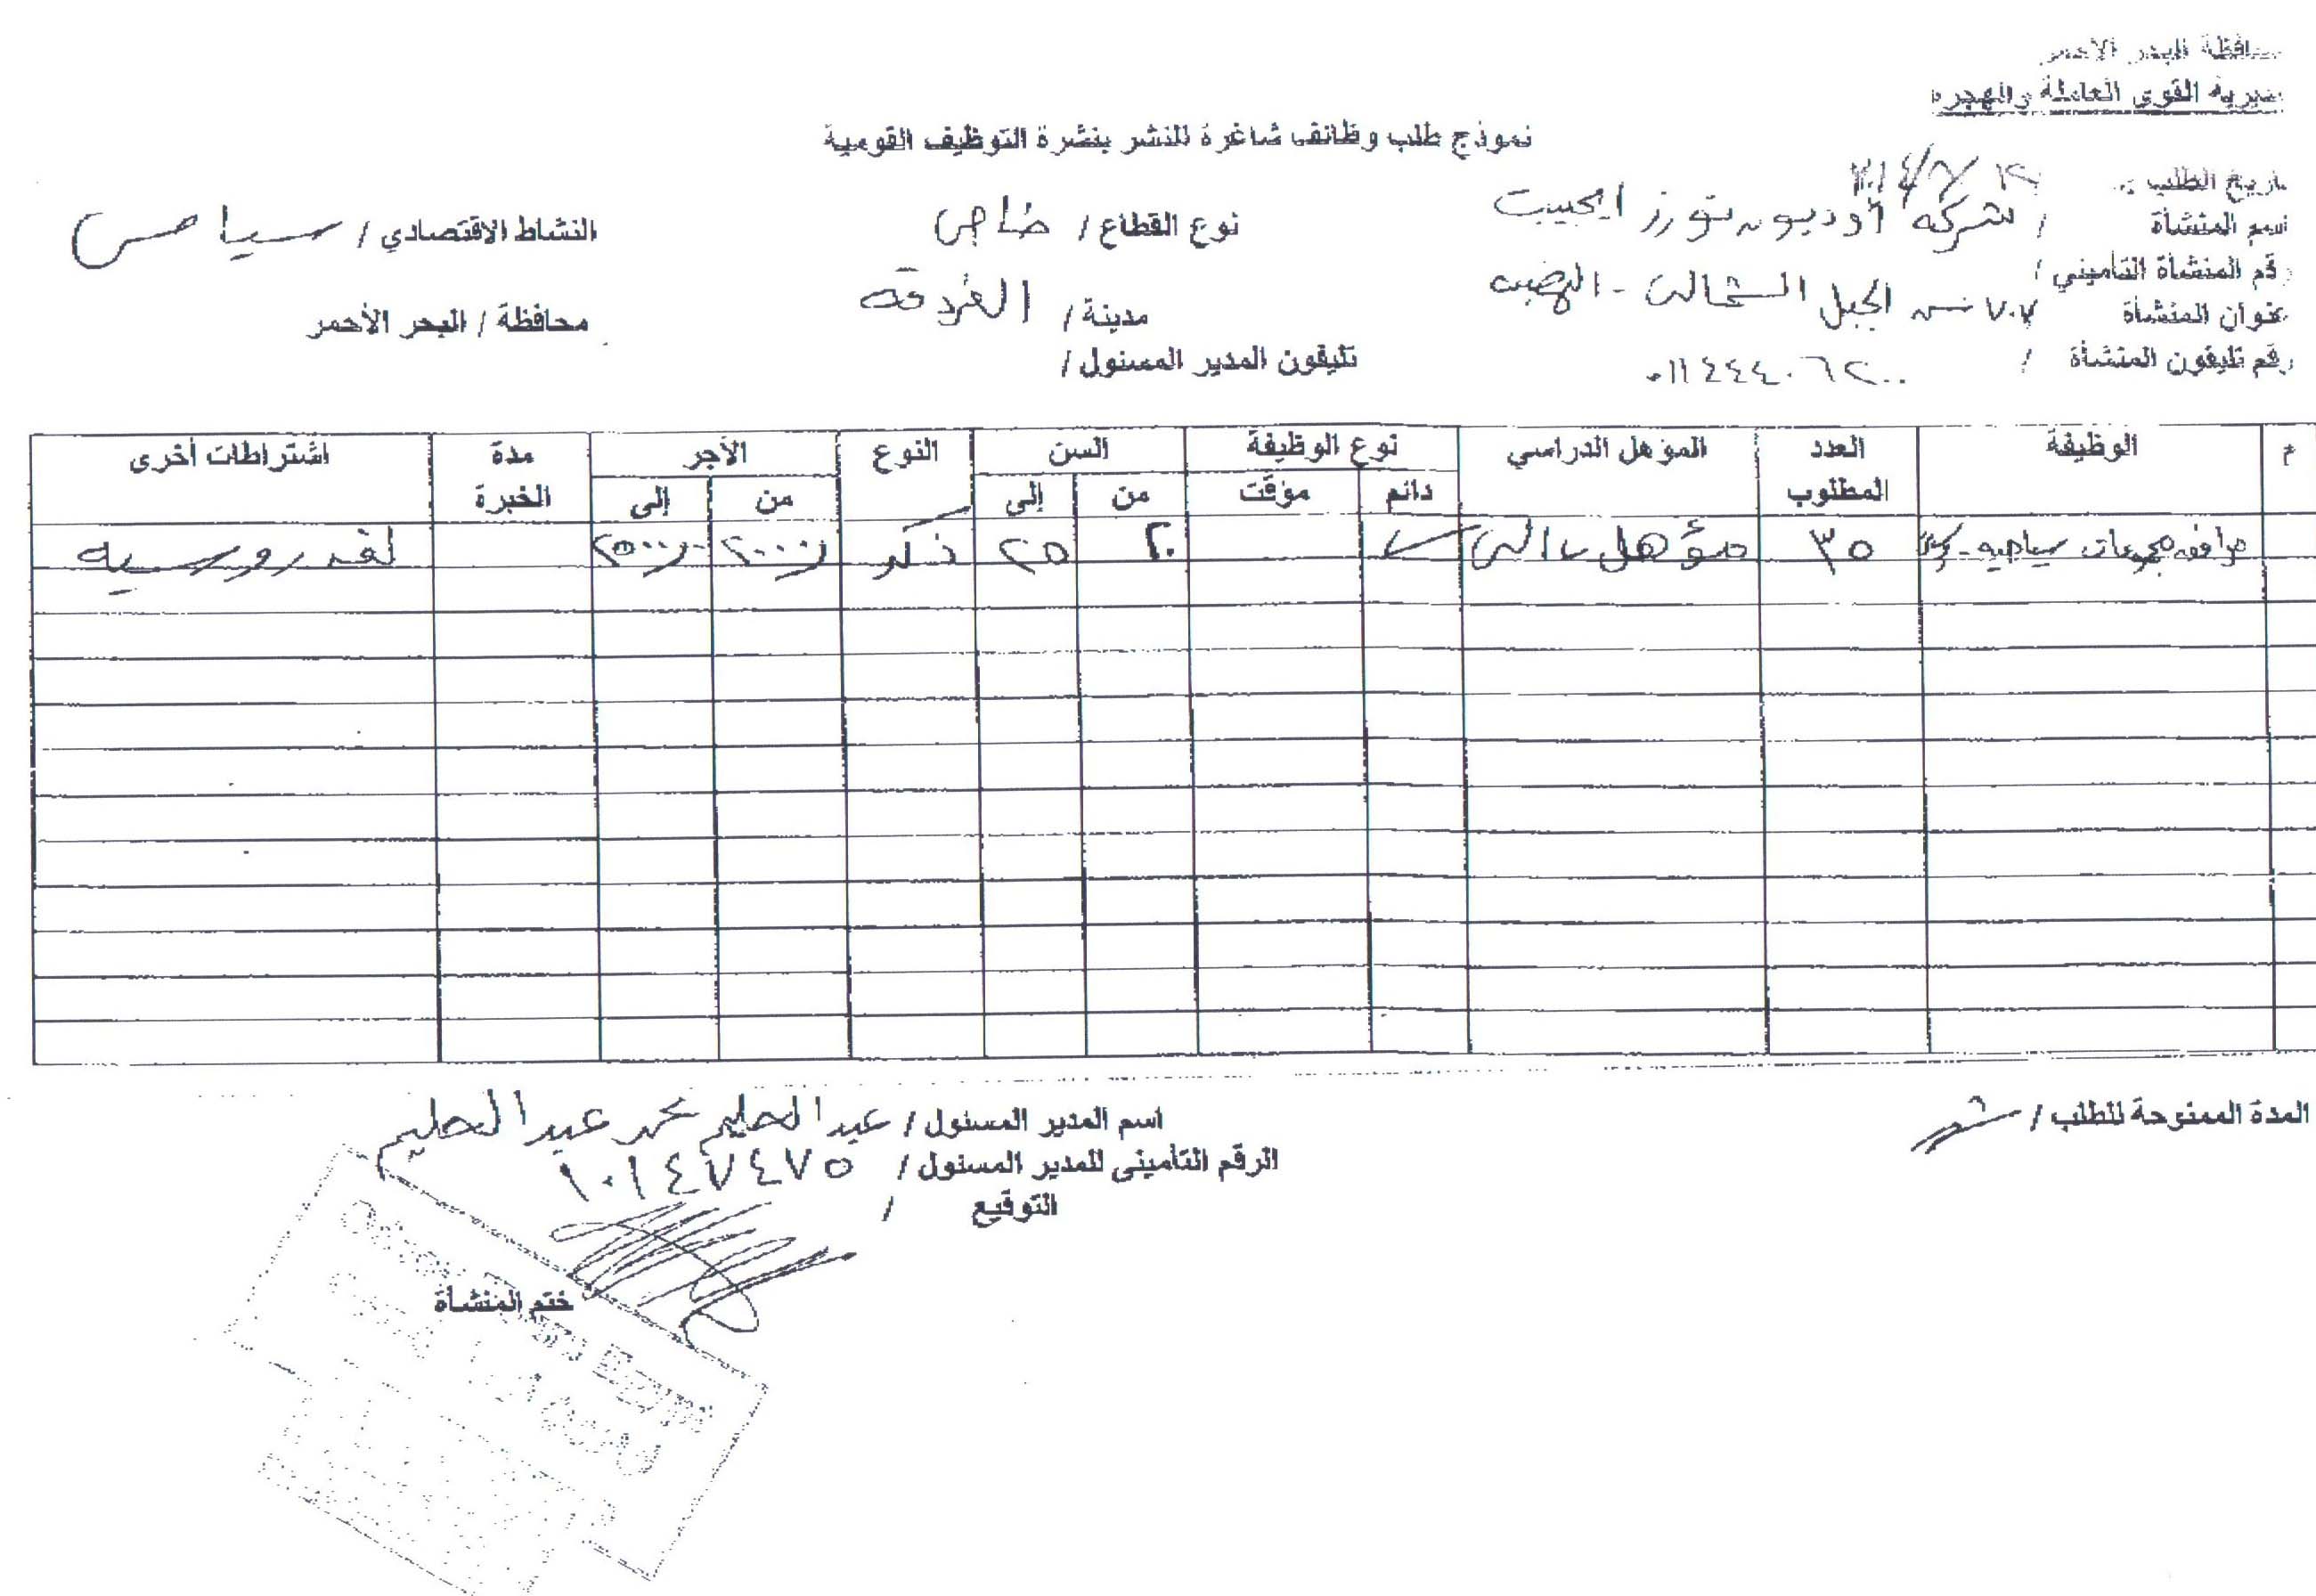 محافظة البحر الأحمر
مديرية القوى العاملة والهجرة
نموذج طلب وظائف شاغرة للنشر بنشرة التوظيف القومية
تاريخ الطلب
اسم المنشأة / شركة أوديون تورز ايجيبت نوع القطاع / خاص النشاط الاقتصادي / سياحي
رقم المنشأة التأميني /
عنوان المنشأة ٧٠٧ ش الجبل الشمالى - الهضبه مدينة / الغردقه محافظة / البحر الأحمر
رقم تليفون المنشأة / ٠١١٤٤٤٠٦٢٠٠ تليفون المدير المسئول /
م الوظيفة العدد المطلوب المؤهل الدراسي نوع الوظيفة السن النوع الأجر مدة الخبرة اشتراطات أخرى
دائم مؤقت من إلى من إلى
مجموعات سياحيه ٣٥ مؤهل عالى ٢٠ ٢٥ ذكر ٢٠٠٠ ٢٥٠٠ لغه روسيه
المدة الممنوحة للطلب / شهر
اسم المدير المسئول / عبد الحليم محمد عبد الحليم
الرقم التأمينى للمدير المسئول / ١٠١٤٧٤٧٥
التوقيع /
ختم المنشأة
Egypt